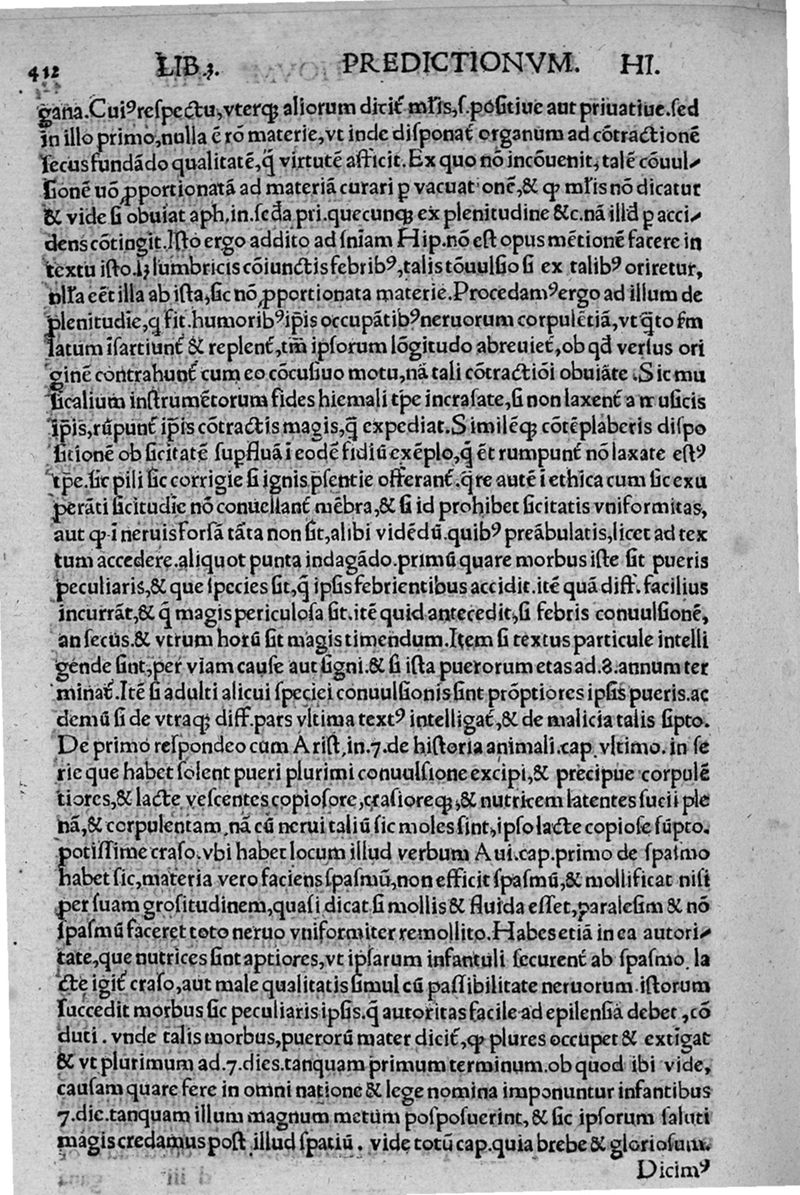 412 LIB.3. PREDICTIONVM. HI.
gana.Cuiꝰ respectu,vterqꝫ aliorum dicit̃ mr̃is,ſ.poſitiue aut priuatiue.ſed
in illo primo,nulla ẽ rõ materie,vt inde diſponat̃ organum ad cõtractionẽ
ſecus fundãdo qualitatẽ,q̃ virtutẽ afficit.Ex quo nõ incõuenit,talẽ cõuul-
ſionẽ uõ ꝓportionatã ad materiã curari p vacuationẽ,& ꝙ mr̃is nõ dicatur
& vide ſi obuiat aph,in.ſecđa pri.quecunqꝫ ex plenitudine &c.nã illđ p acci-
dens cõtingit.Iſto ergo addito ad ſniam Hip.nõ eſt opus mẽtionẽ facere in
textu iſto.lꝫ lumbricis cõiunctis febribꝰ,talis tõuulſio ſi ex talibꝰ oriretur,
nr̃a eẽt illa ab iſta,ſic nõ ꝓportionata materie.Procedamꝰ ergo ad illum de
plenitudĩe,q fit.humoribꝰ ip̃is occupãtibꝰ neruorum corpulẽtiã,vt q̃to ſm
latum ĩſartiunt̃ & replent̃,tm̃ ipſorum lõgitudo abreuiet̃,ob qđ verſus ori
ginẽ contrahunt̃ cum eo cõcuſiuo motu,nã tali cõtractiõi obuiãte.Sic mu
ſicalium inſtrumẽtorum fides hiemali tp̃e incraſate,ſi non laxent̃ a muſicis
ip̃is,rũpunt̃ ip̃is cõtractis magis,q̃ expediat.Similẽqꝫ cõtẽplaberis diſpo
ſitionẽ ob ſicitatẽ ſupfluã ĩ eodẽ fidiũ exẽplo,q̃ ẽt rumpunt̃ nõ laxate eſtꝰ
tp̃e.ſic pili ſic corrigie ſi ignis p̃ſentie offerant̃.q̃re autẽ ĩ ethica cum ſic exu
perãti ſicitudĩe nõ conuellant̃ mẽbra,& ſi id prohibet ſicitatis vniformitas,
aut ꝙ ĩ neruis forſã tãta non ſit,alibi vidẽdũ.quibꝰ preãbulatis,licet ad tex
tum accedere.aliquot punta indagãdo.primũ quare morbus iſte ſit pueris
peculiaris,& que ſpecies ſit,q̃ ipſis febrientibus accidit.itẽ quã diff.facilius
incurrãt,& q̃ magis periculoſa ſit.itẽ quid antecedit,ſi febris conuulſionẽ,
an ſecus.& vtrum horũ ſit magis timendum.Item ſi textus particule intelli
gende ſint,per viam cauſe aut ſigni.& ſi iſta puerorum etas ad.8.annum ter
minat̃.Itẽ ſi adulti alicui ſpeciei conuulſionis ſint prõptiores ipſis pueris.ac
demũ ſi de vtraqꝫ diff.pars vltima textꝰ intelligat̃,& de malicia talis ſipto.
De primo reſpondeo cum Ariſt,in.7.de hiſtoria animali.cap.vltimo.in ſe
rie que habet ſolent pueri plurimi conuulſione excipi,& precipue corpulẽ
tiores,& lacte veſcentes copioſore,craſioreqꝫ,& nutricem latentes ſucii ple
nã,& corpulentam,nã cũ nerui taliũ ſic moles ſint,ipſo lacte copioſe ſũpto.
potiſſime craſo.vbi habet locum illud verbum Aui.cap.primo de ſpaſmo
habet ſic,materia vero faciens ſpaſmũ,non efficit ſpaſmũ,& mollificat niſi
per ſuam groſitudinem,quaſi dicat ſi mollis & fluida eſſet,paraleſim & nõ
ſpaſmũ faceret toto neruo vniformiter remollito.Habes etiã in ea autori-
tate,que nutrices ſint aptiores,vt ipſarum infantuli ſecurent̃ ab ſpaſmo.la
cte igit̃ craſo,aut male qualitatis ſimul cũ paſſibilitate neruorum.iſtorum
ſuccedit morbus ſic peculiaris ipſis.q̃ autoritas facile ad epilenſiã debet,cõ
duti.vnde talis morbus,puerorũ mater dicit̃,ꝙ plures occupet & extĩgat
& vt plurimum ad.7.dies.tanquam primum terminum.ob quod ibi vide,
cauſam quare fere in omni natione & lege nomina imponuntur infantibus
7.die.tanquam illum magnum metum poſpoſuerint,& ſic ipſorum ſaluti
magis credamus poſt illud ſpatiũ.vide totũ cap.quia brebe & glorioſum.
Dicimꝰ